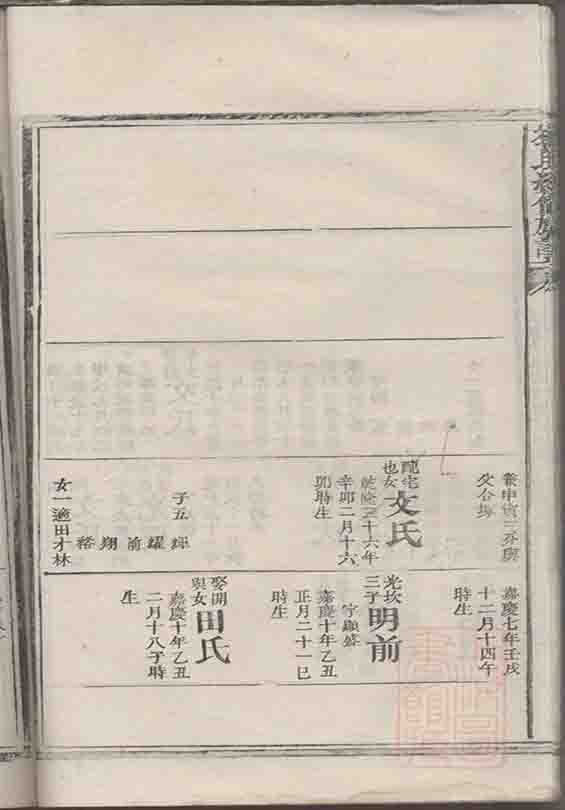 配宅
也女
文氏
乾隆三十六年
辛卯二月十六
卯時生
子五 輝
耀
前
翔
裕
女一適田才林
嘉慶七年壬戌
十二月十四午
時生
光坎
三子
明前
字顯盛
嘉慶十年乙丑
正月二十一巳
時生
娶開
與女
田氏
嘉慶十年乙丑
二月十八子時
生